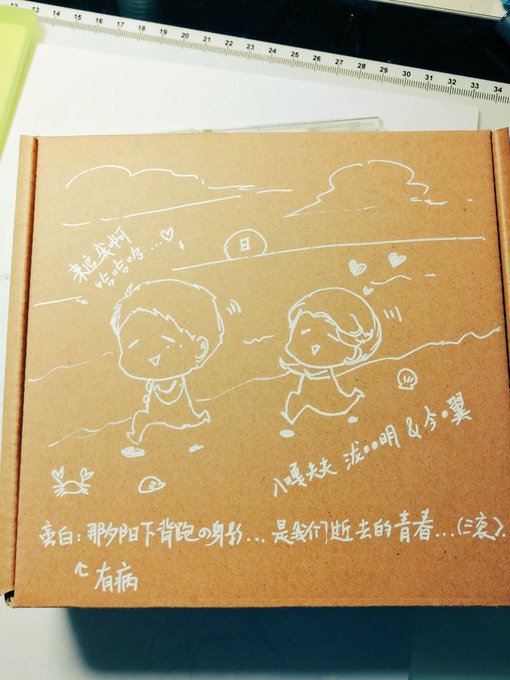 12 13 14 15 16 17 18 19 20 21 22 23 24 25 26 27 28 29 30 31 32 33 34
来追我啊
哈哈哈...♡
日
八嘎夫夫 泷●●明 & 今●翼
旁白:那夕阳下背跑の身影...是我们逝去的青春...(滚).
↖有病